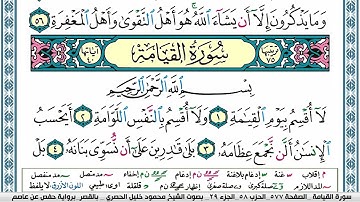 وَمَا يَذْكُرُونَ إِلَّا أَن يَشَاءَ اللَّهُ هُوَ أَهْلُ التَّقْوَىٰ وَأَهْلُ الْمَغْفِرَةِ ٥٦
سُورَةُ الْقِيَامَةِ
بِسْمِ اللَّهِ الرَّحْمَٰنِ الرَّحِيمِ
لَا أُقْسِمُ بِيَوْمِ الْقِيَامَةِ ١ وَلَا أُقْسِمُ بِالنَّفْسِ اللَّوَّامَةِ ٢ أَيَحْسَبُ
الْإِنسَانُ أَلَّن نَّجْمَعَ عِظَامَهُ ٣ بَلَىٰ قَادِرِينَ عَلَىٰ أَن نُّسَوِّيَ بَنَانَهُ ٤ بَلْ
سورة القيامة الصفحة ٥٧٧ الحزب ٥٨ الجزء ٢٩ بصوت الشيخ محمود خليل الحصري بالقصر برواية حفص عن عاصم